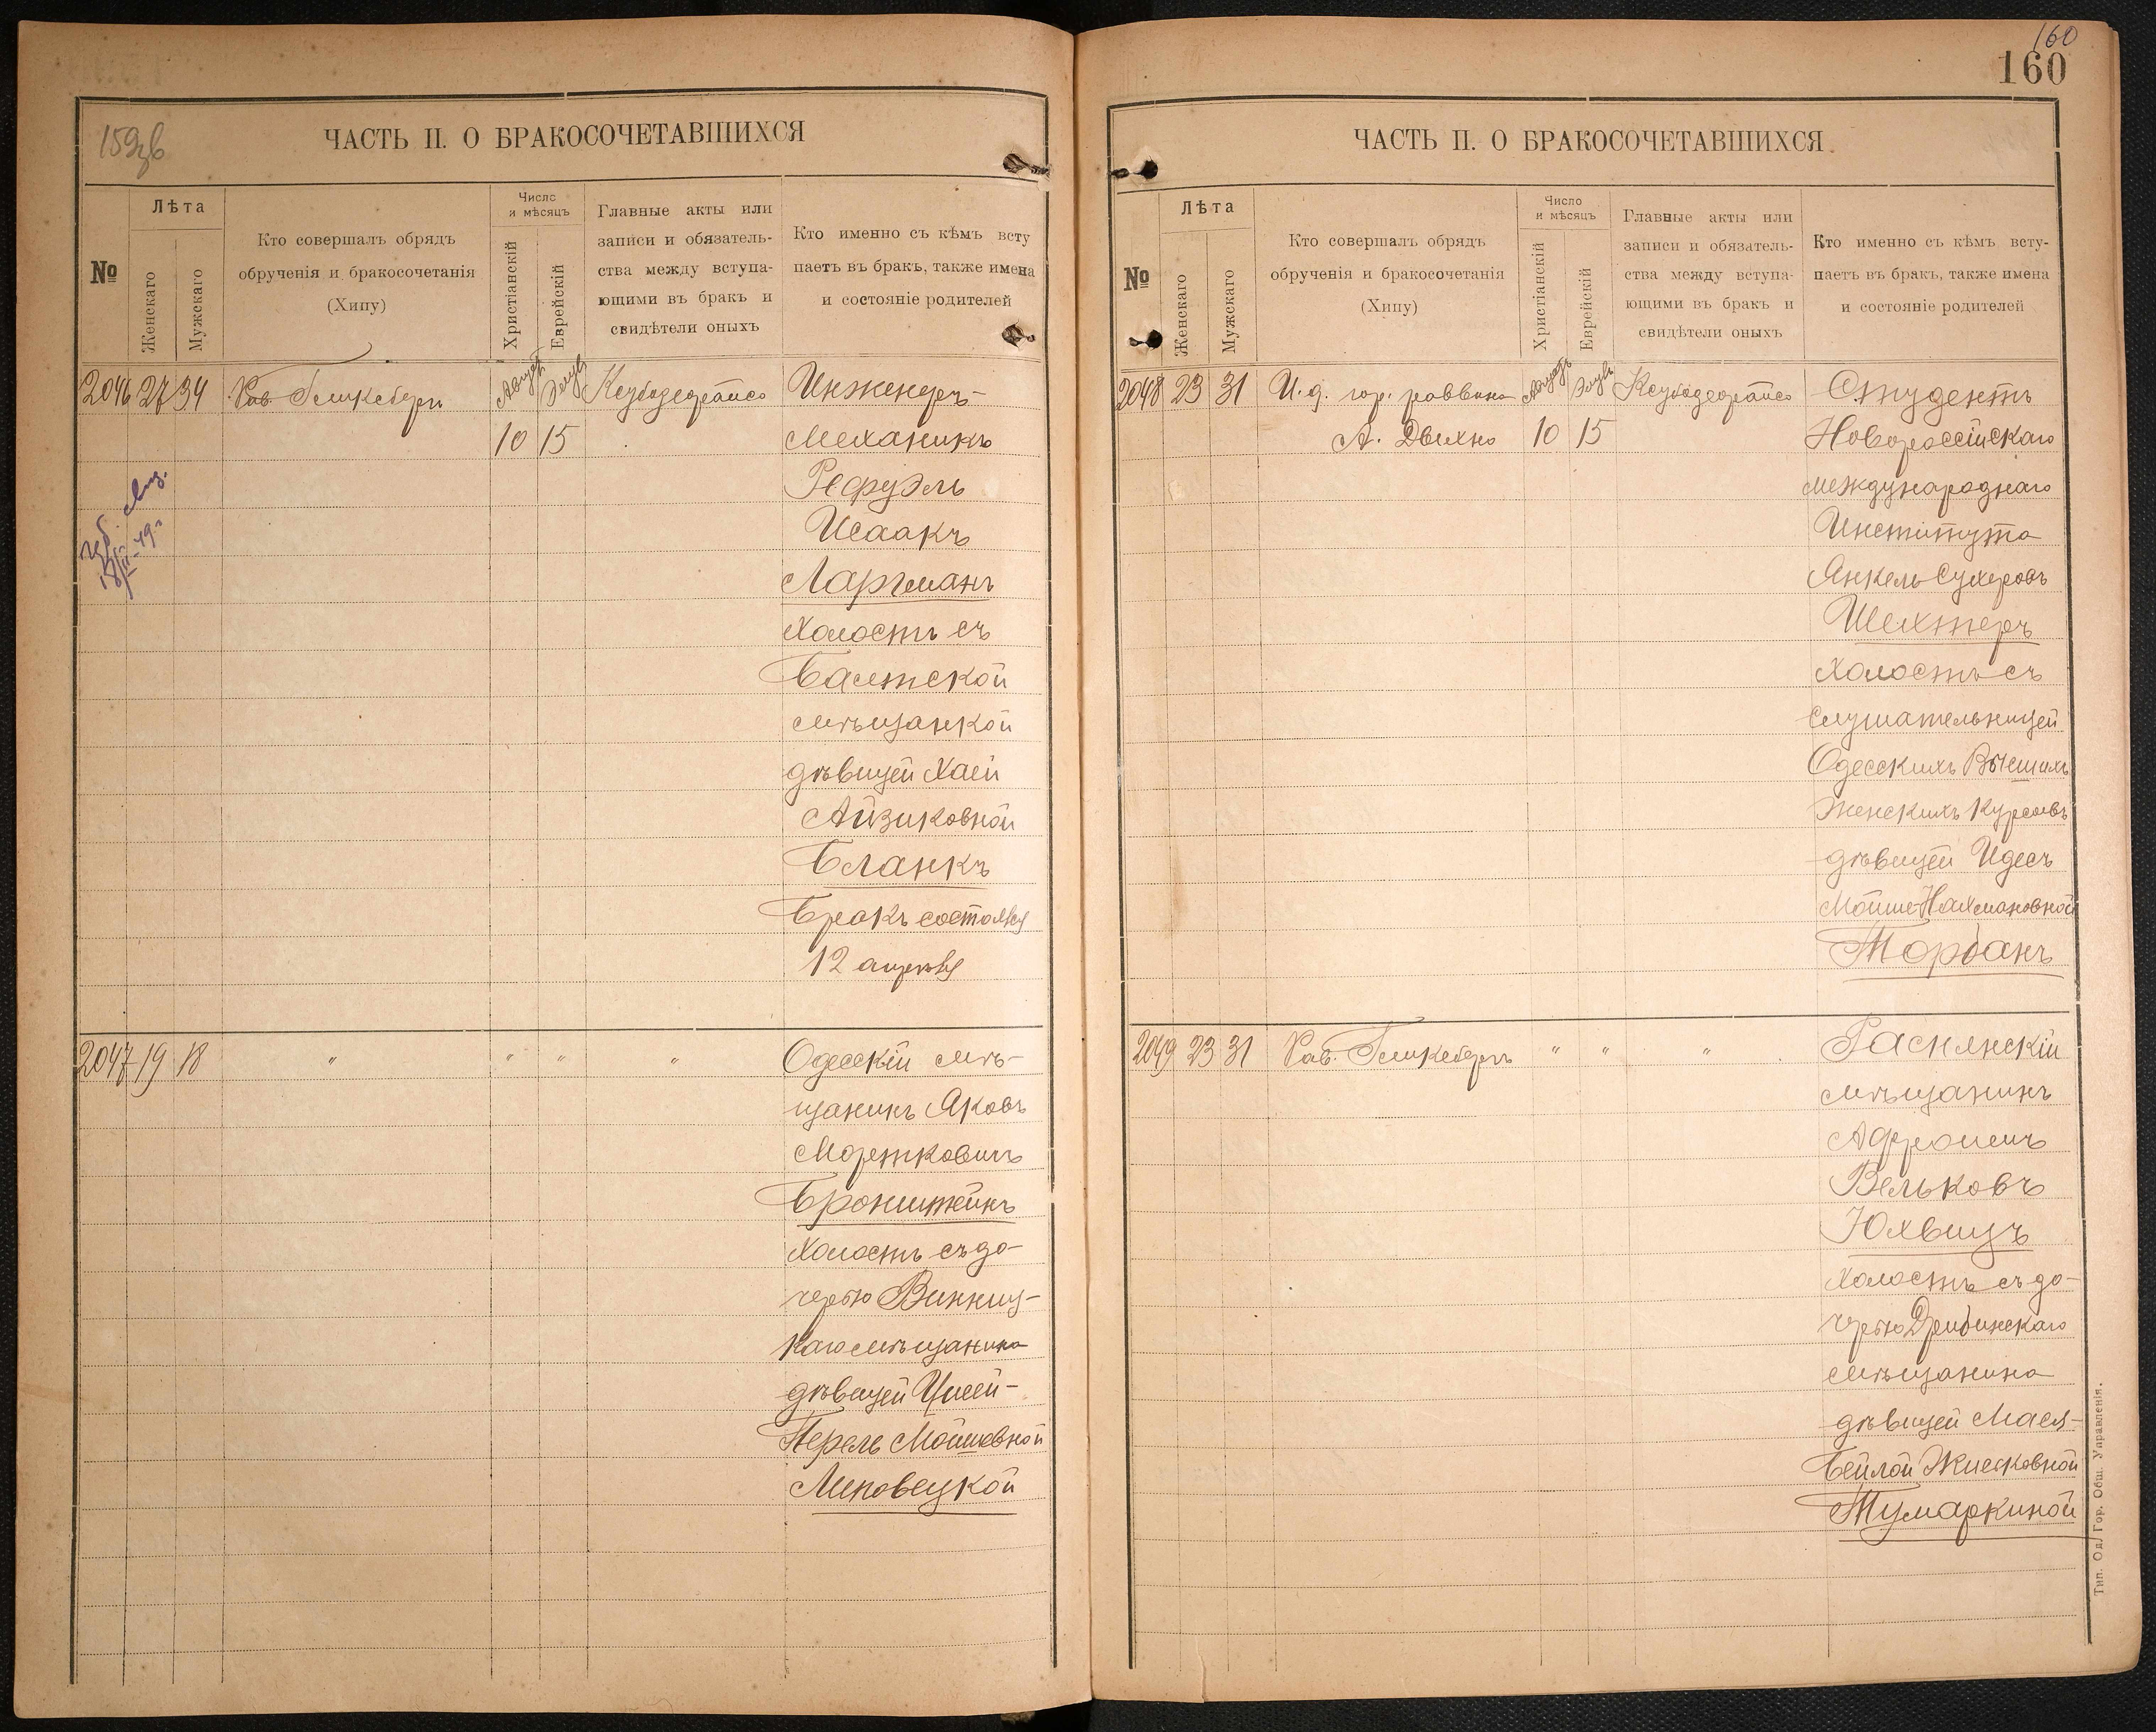 159зв
ЧАСТЬ II. О БРАКОСОЧЕТАВШИХСЯ
№
Лѣта
Женскаго
Мужскаго
Кто совершалъ обрядъ
обрученія и бракосочетанія
(Хипу)
Число
и мѣсяцъ
Христіанскій
Еврейскій
Главные акты или
записи и обязатель-
ства между вступа-
ющими въ бракъ и
свидѣтели оныхъ
Кто именно съ кѣмъ всту
паетъ въ бракъ, также имена
и состояніе родителей
2046 27 34 Рав. Гликсбергъ Августъ Элулъ Инженеръ-
10 15 Механикъ
Рефуэль
Исаакъ
Ларгманъ
холостъ съ
Балтской
мѣщанкой
дѣвицей Хаей
Айзиковной
Бланкъ
Бракъ состоялся
12 апрѣля
2047 19 18 " " " " Одесскій мѣ-
щанинъ Яковъ
Мортковичъ
Бронштейнъ
холостъ съ до-
черью Винниц-
каго мѣщанина
дѣвицей Цилей-
Перель Мошковной
Липовецкой
160
160
ЧАСТЬ II. О БРАКОСОЧЕТАВШИХСЯ
№
Лѣта
Женскаго
Мужскаго
Кто совершалъ обрядъ
обрученія и бракосочетанія
(Хипу)
Число
и мѣсяцъ
Христіанскій
Еврейскій
Главные акты или
записи и обязатель-
ства между вступа-
ющими въ бракъ и
свидѣтели оныхъ
Кто именно съ кѣмъ всту-
паетъ въ бракъ, также имена
и состояніе родителей
2048 23 31 И. д. гор. раввина Августъ Элулъ Студентъ
А. Двихно 10 15 Новороссійскаго
международнаго
Института
Янкель Сухеровъ
Шехтеръ
холостъ съ
слушательницей
Одесскихъ Высшихъ
Женскихъ Курсовъ
дѣвицей Идесъ
Мойше-Нахмановной
Торбанъ
2049 23 31 Рав. Гликсбергъ " " " Раснянскій
мѣщанинъ
Афроимъ
Вельковъ
Юхвицъ
холостъ съ до-
черью Дрибинскаго
мѣщанина
дѣвицей Масей-
Бейлой
Тумаркиной
Тип. Од. Гор. Общ. Управленія.